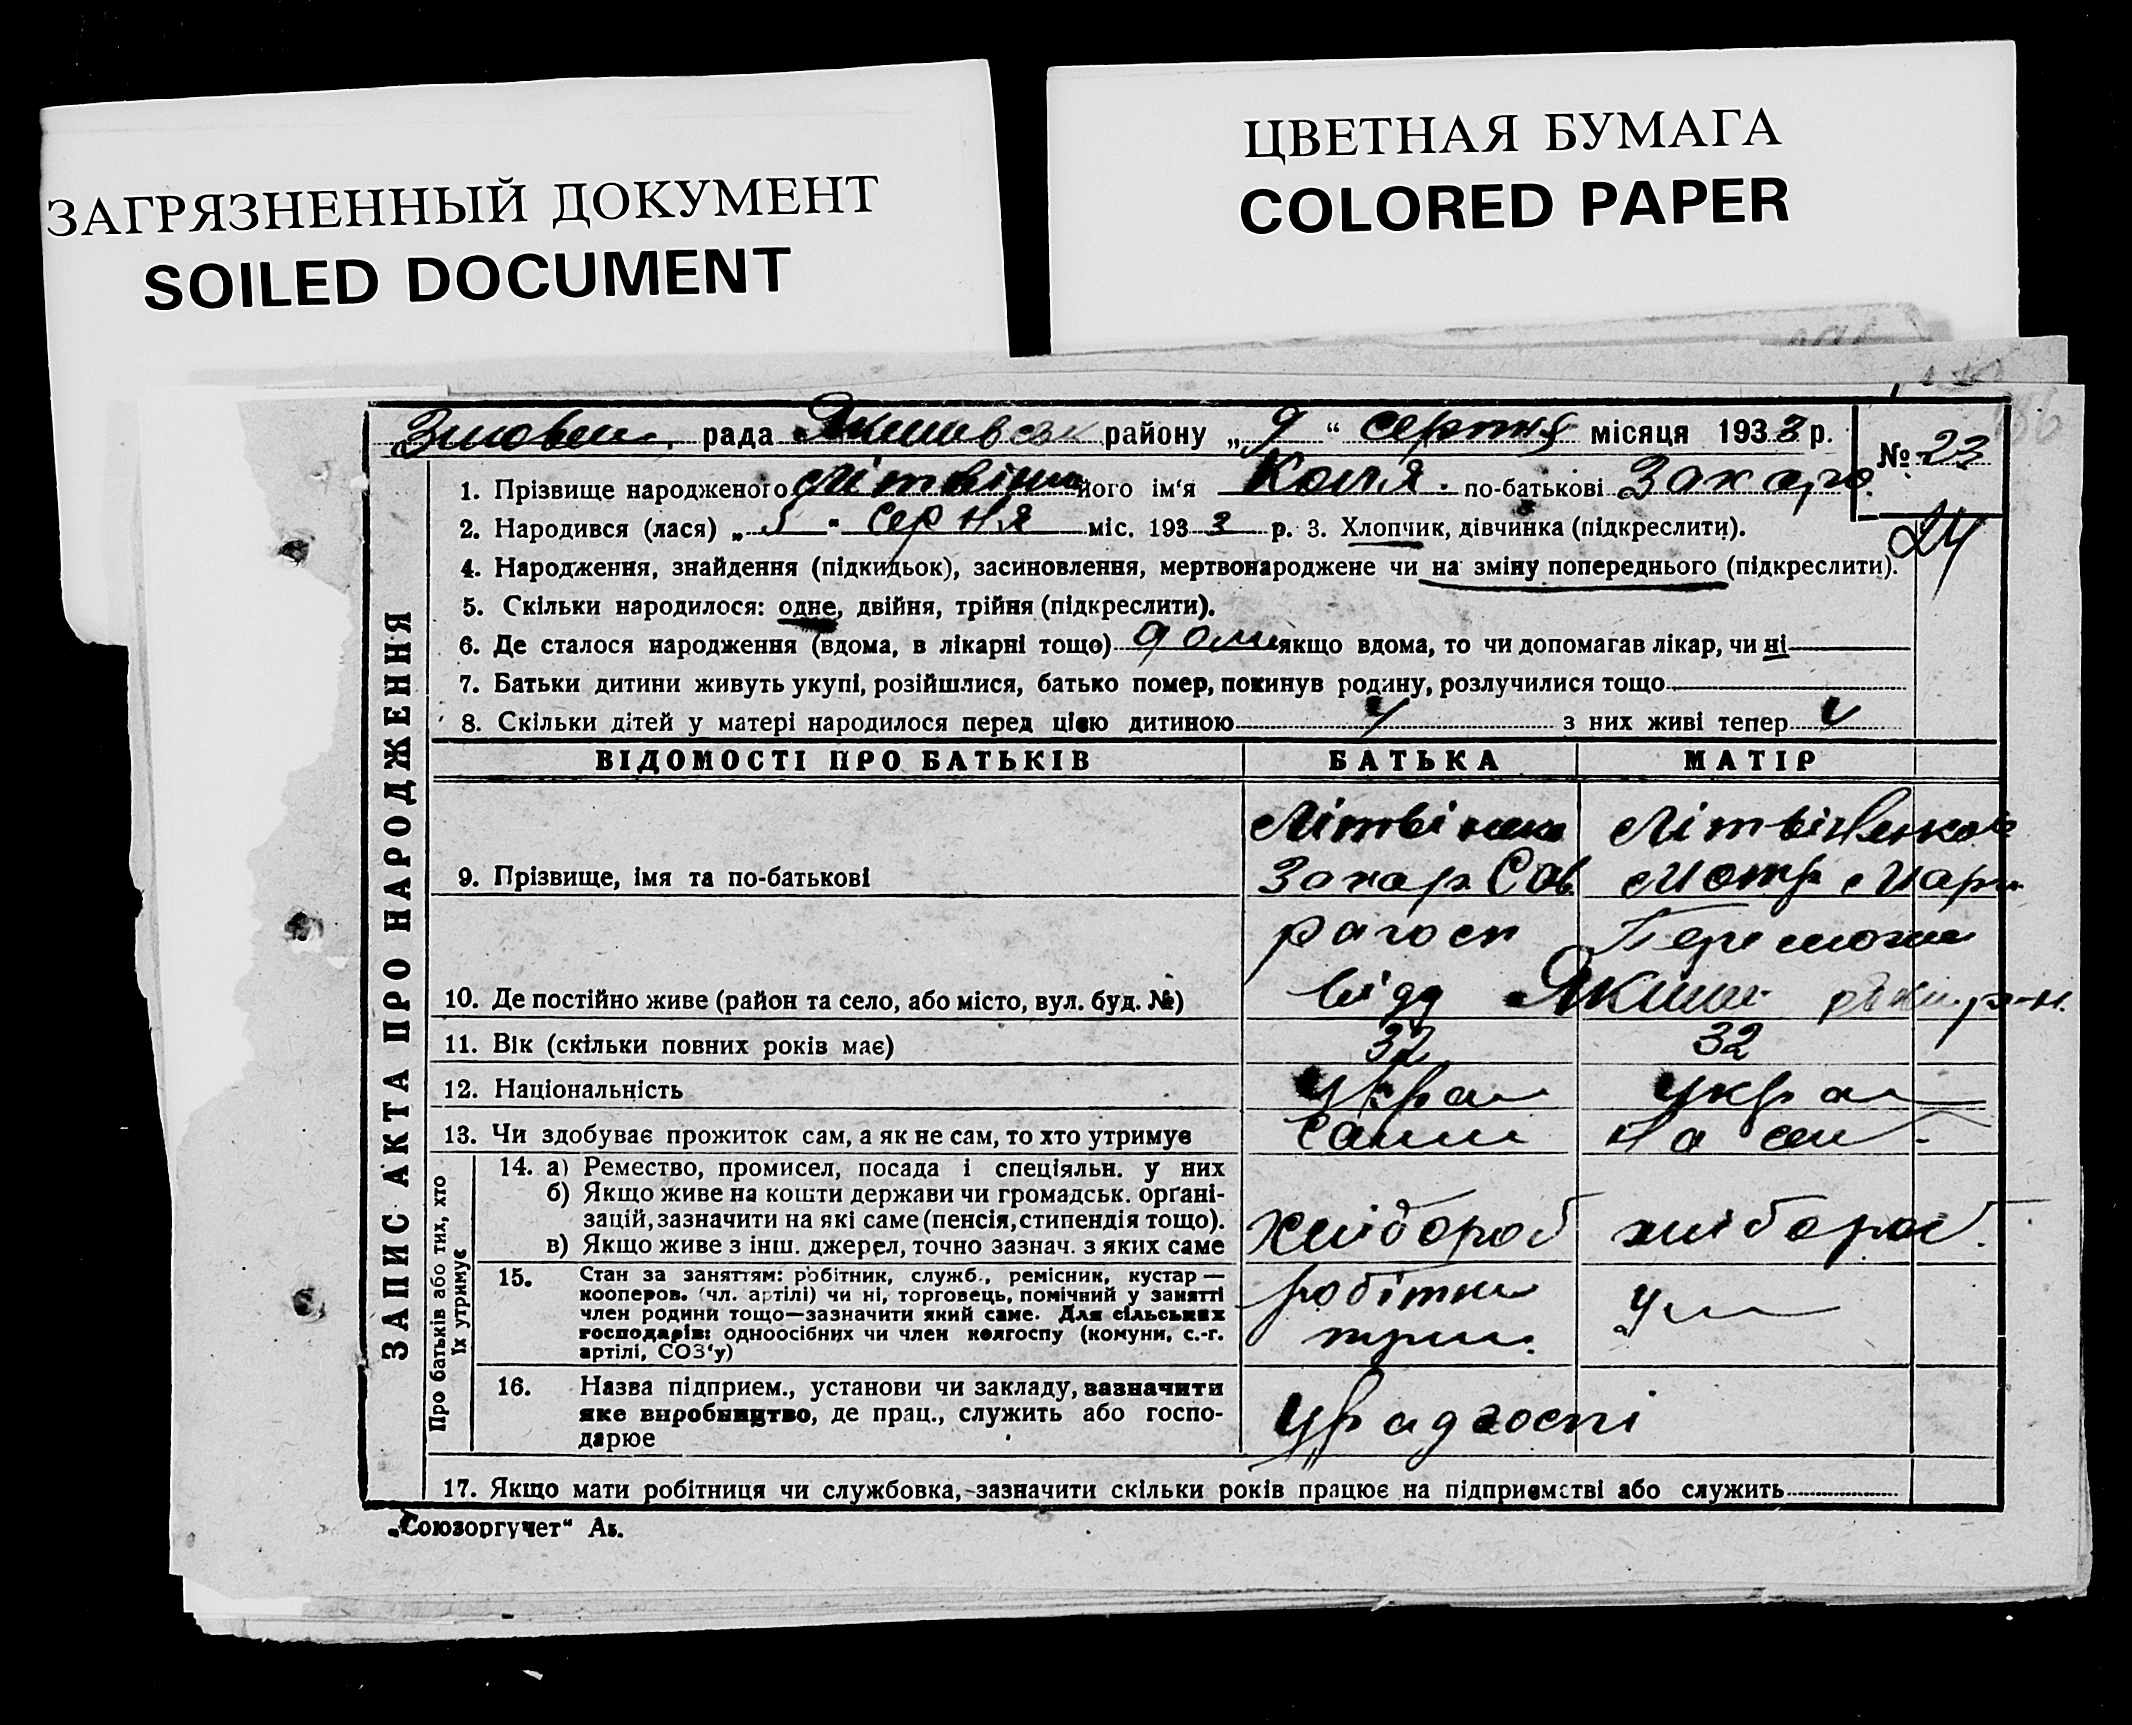 ЗАГРЯЗНЕННЫЙ ДОКУМЕНТ
SOILED DOCUMENT
ЦВЕТНАЯ БУМАГА
COLORED PAPER
рада Якимівськ району „9“ серпня місяця 1933 р.
№ 23
24
1. Прізвище народженого Літвінко його ім'я Коля. по-батькові Захаро.
2. Народився (лася) „5" серпня міс. 1933 р. 3. Хлопчик, дівчинка (підкреслити).
4. Народження, знайдення (підкидьок), засиновлення, мертвонароджене чи на зміну попереднього (підкреслити).
5. Скільки народилося: одне, двійня, трійня (підкреслити).
6. Де сталося народження (вдома, в лікарні тощо) дома якщо вдома, то чи допомагав лікар, чи ні
7. Батьки дитини живуть укупі, розійшлися, батько помер, покинув родину, розлучилися тощо
8. Скільки дітей у матері народилося перед цією дитиною з них живі тепер
ВІДОМОСТІ ПРО БАТЬКІВ БАТЬКА МАТІР
Літвінко Літвіненкова
9. Прізвище, імя та по-батькові Захар Сав Мотр Мари
рагосп
10. Де постійно живе (район та село, або місто, вул. буд. №) відд Яким р-н.
11. Вік (скільки повних років має) 32 32
12. Національність Украї украї
13. Чи здобуває прожиток сам, а як не сам, то хто утримує самі
14. а) Ремество, промисел, посада і спеціяльн. у них
б) Якщо живе на кошти держави чи громадськ. органі-
зацій, зазначити на які саме (пенсія, стипендія тощо). хлібороб хлібороб.
в) Якщо живе з інш. джерел, точно зазнач. з яких саме
15. Стан за заняттям: робітник, служб., ремісник, кустар —
кооперов. (чл. артілі) чи ні, торговець, помічний у занятті
член родини тощо—зазначити який саме. Для сільських
господарів: одноосібних чи член колгоспу (комуни, с.-г.
артілі, СОЗ'у)
робітни
16. Назва підприем., установи чи закладу, зазначити
яке виробництво, де прац., служить або госпо-
дарюе
у радгоспі
17. Якщо мати робітниця чи службовка, зазначити скільки років працює на підприємстві або служить
ЗАПИС АКТА ПРО НАРОДЖЕННЯ
Про батьків або тих, хто
їх утримує
„Союзоргучет“ Аз.